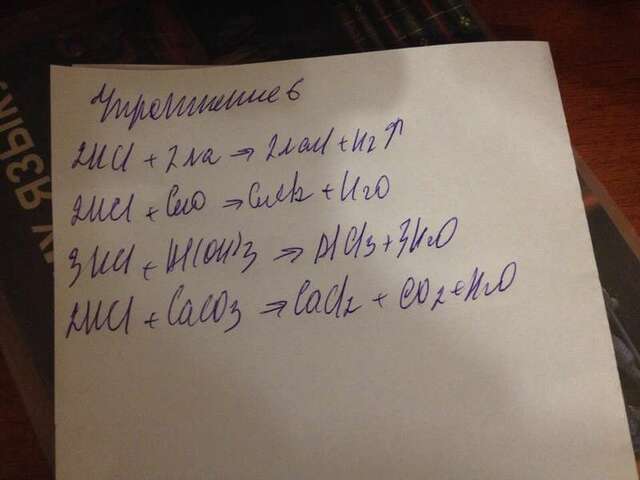 Упражнение 6
2HCl + 2Na ⇒ 2NaCl + H2↑
2HCl + CuO ⇒ CuCl2 + H2O
3HCl + Al(OH)3 ⇒ AlCl3 + 3H2O
2HCl + CaCO3 ⇒ CaCl2 + CO2 + H2O
ЯЗЫК